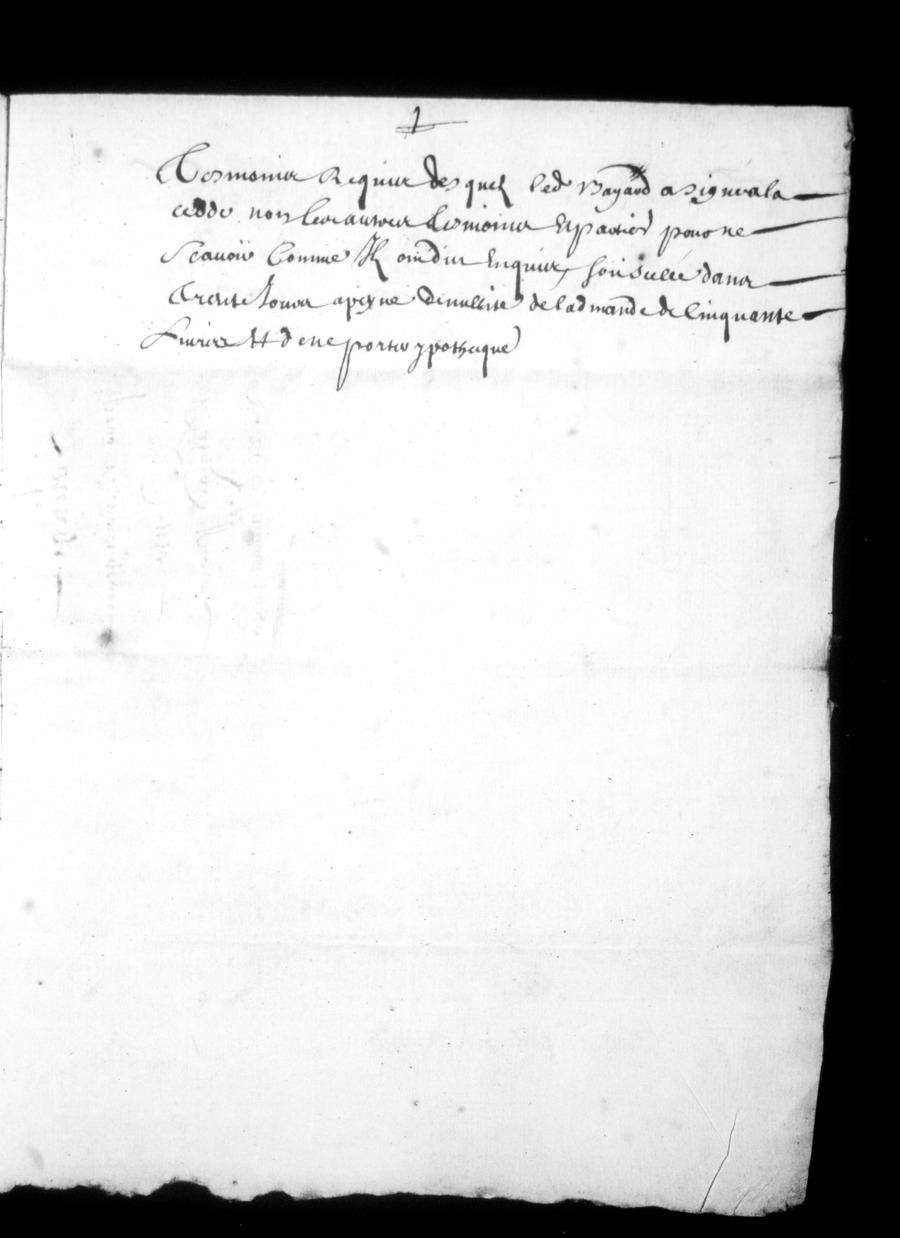 Tesmoins Requis desquelz led Bayard a signe la
cedde non les autres tesmoins et parties pour ne
scavoir comme Ilz ont dit enquis, soit scelé dans
trente Jours a peyne de nullité de lad mande de cinquante
Livres Et de ne porter ypotheque